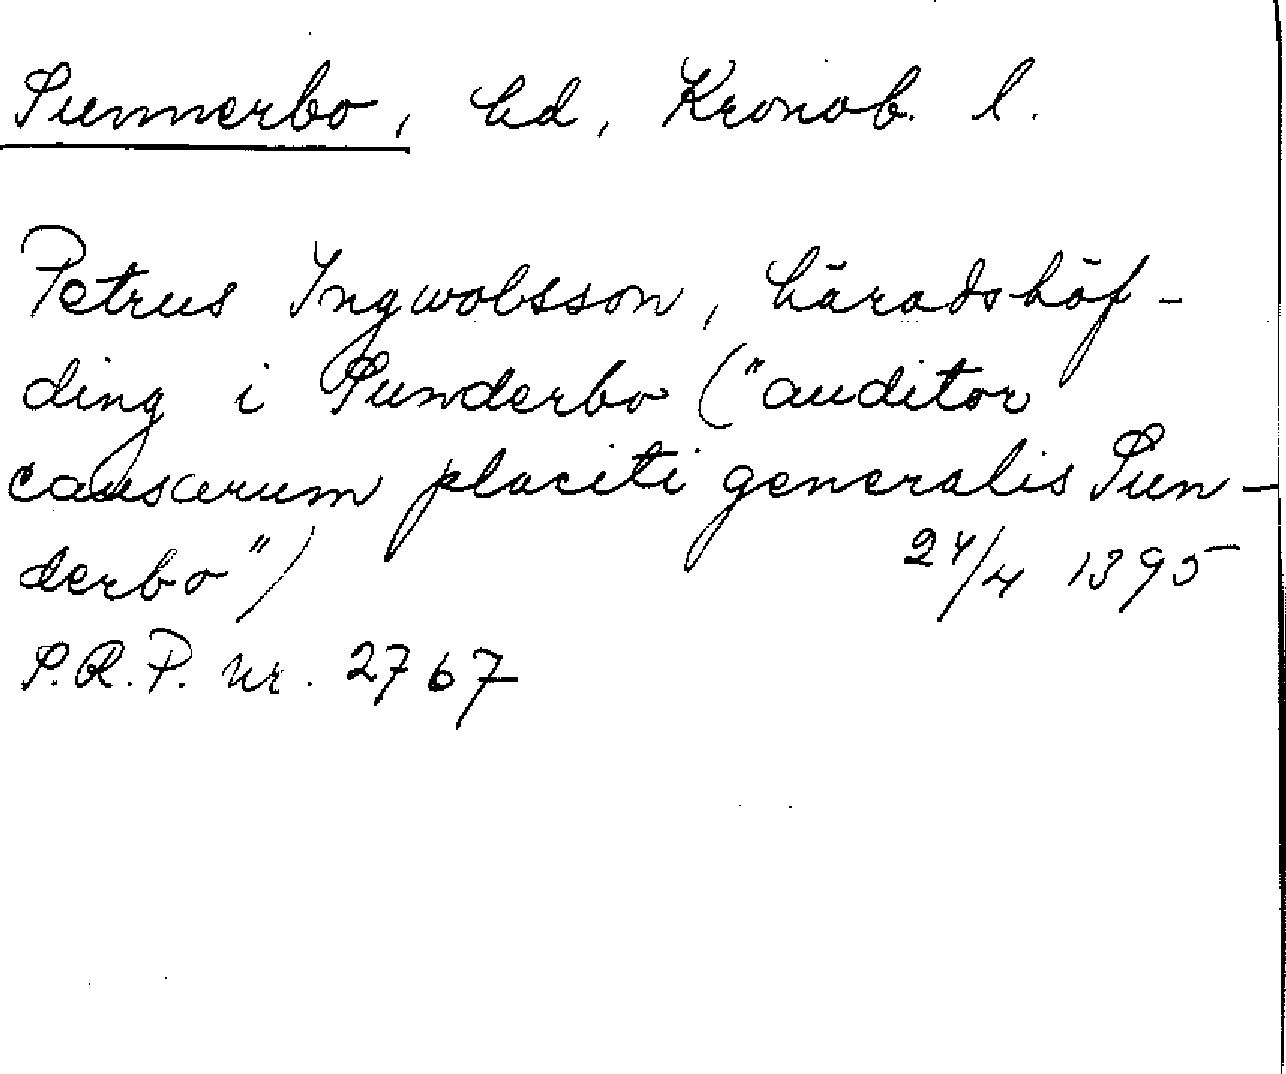 Sunnerbo, hd, Kronob. l.
Petrus Ingwolsson, häradshöf-
ding i Sunderbo ("auditor
causarum placiti generalis Sun-
derbo") 24/4 1395
S.R.P. nr. 2767